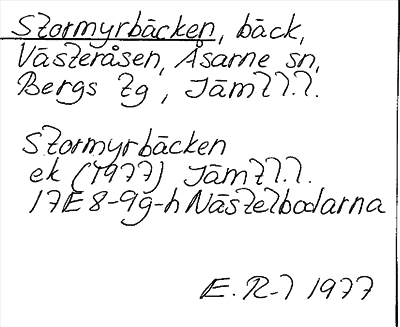 Stormyrbäcken, bäck,
Västeråsen, Åsarne sn,
Bergs tg, Jämtl.
Stormyrbäcken
ek (1977) Jämtl.
17E 8-9g-h Nästelbodarna
E. R-l 1977